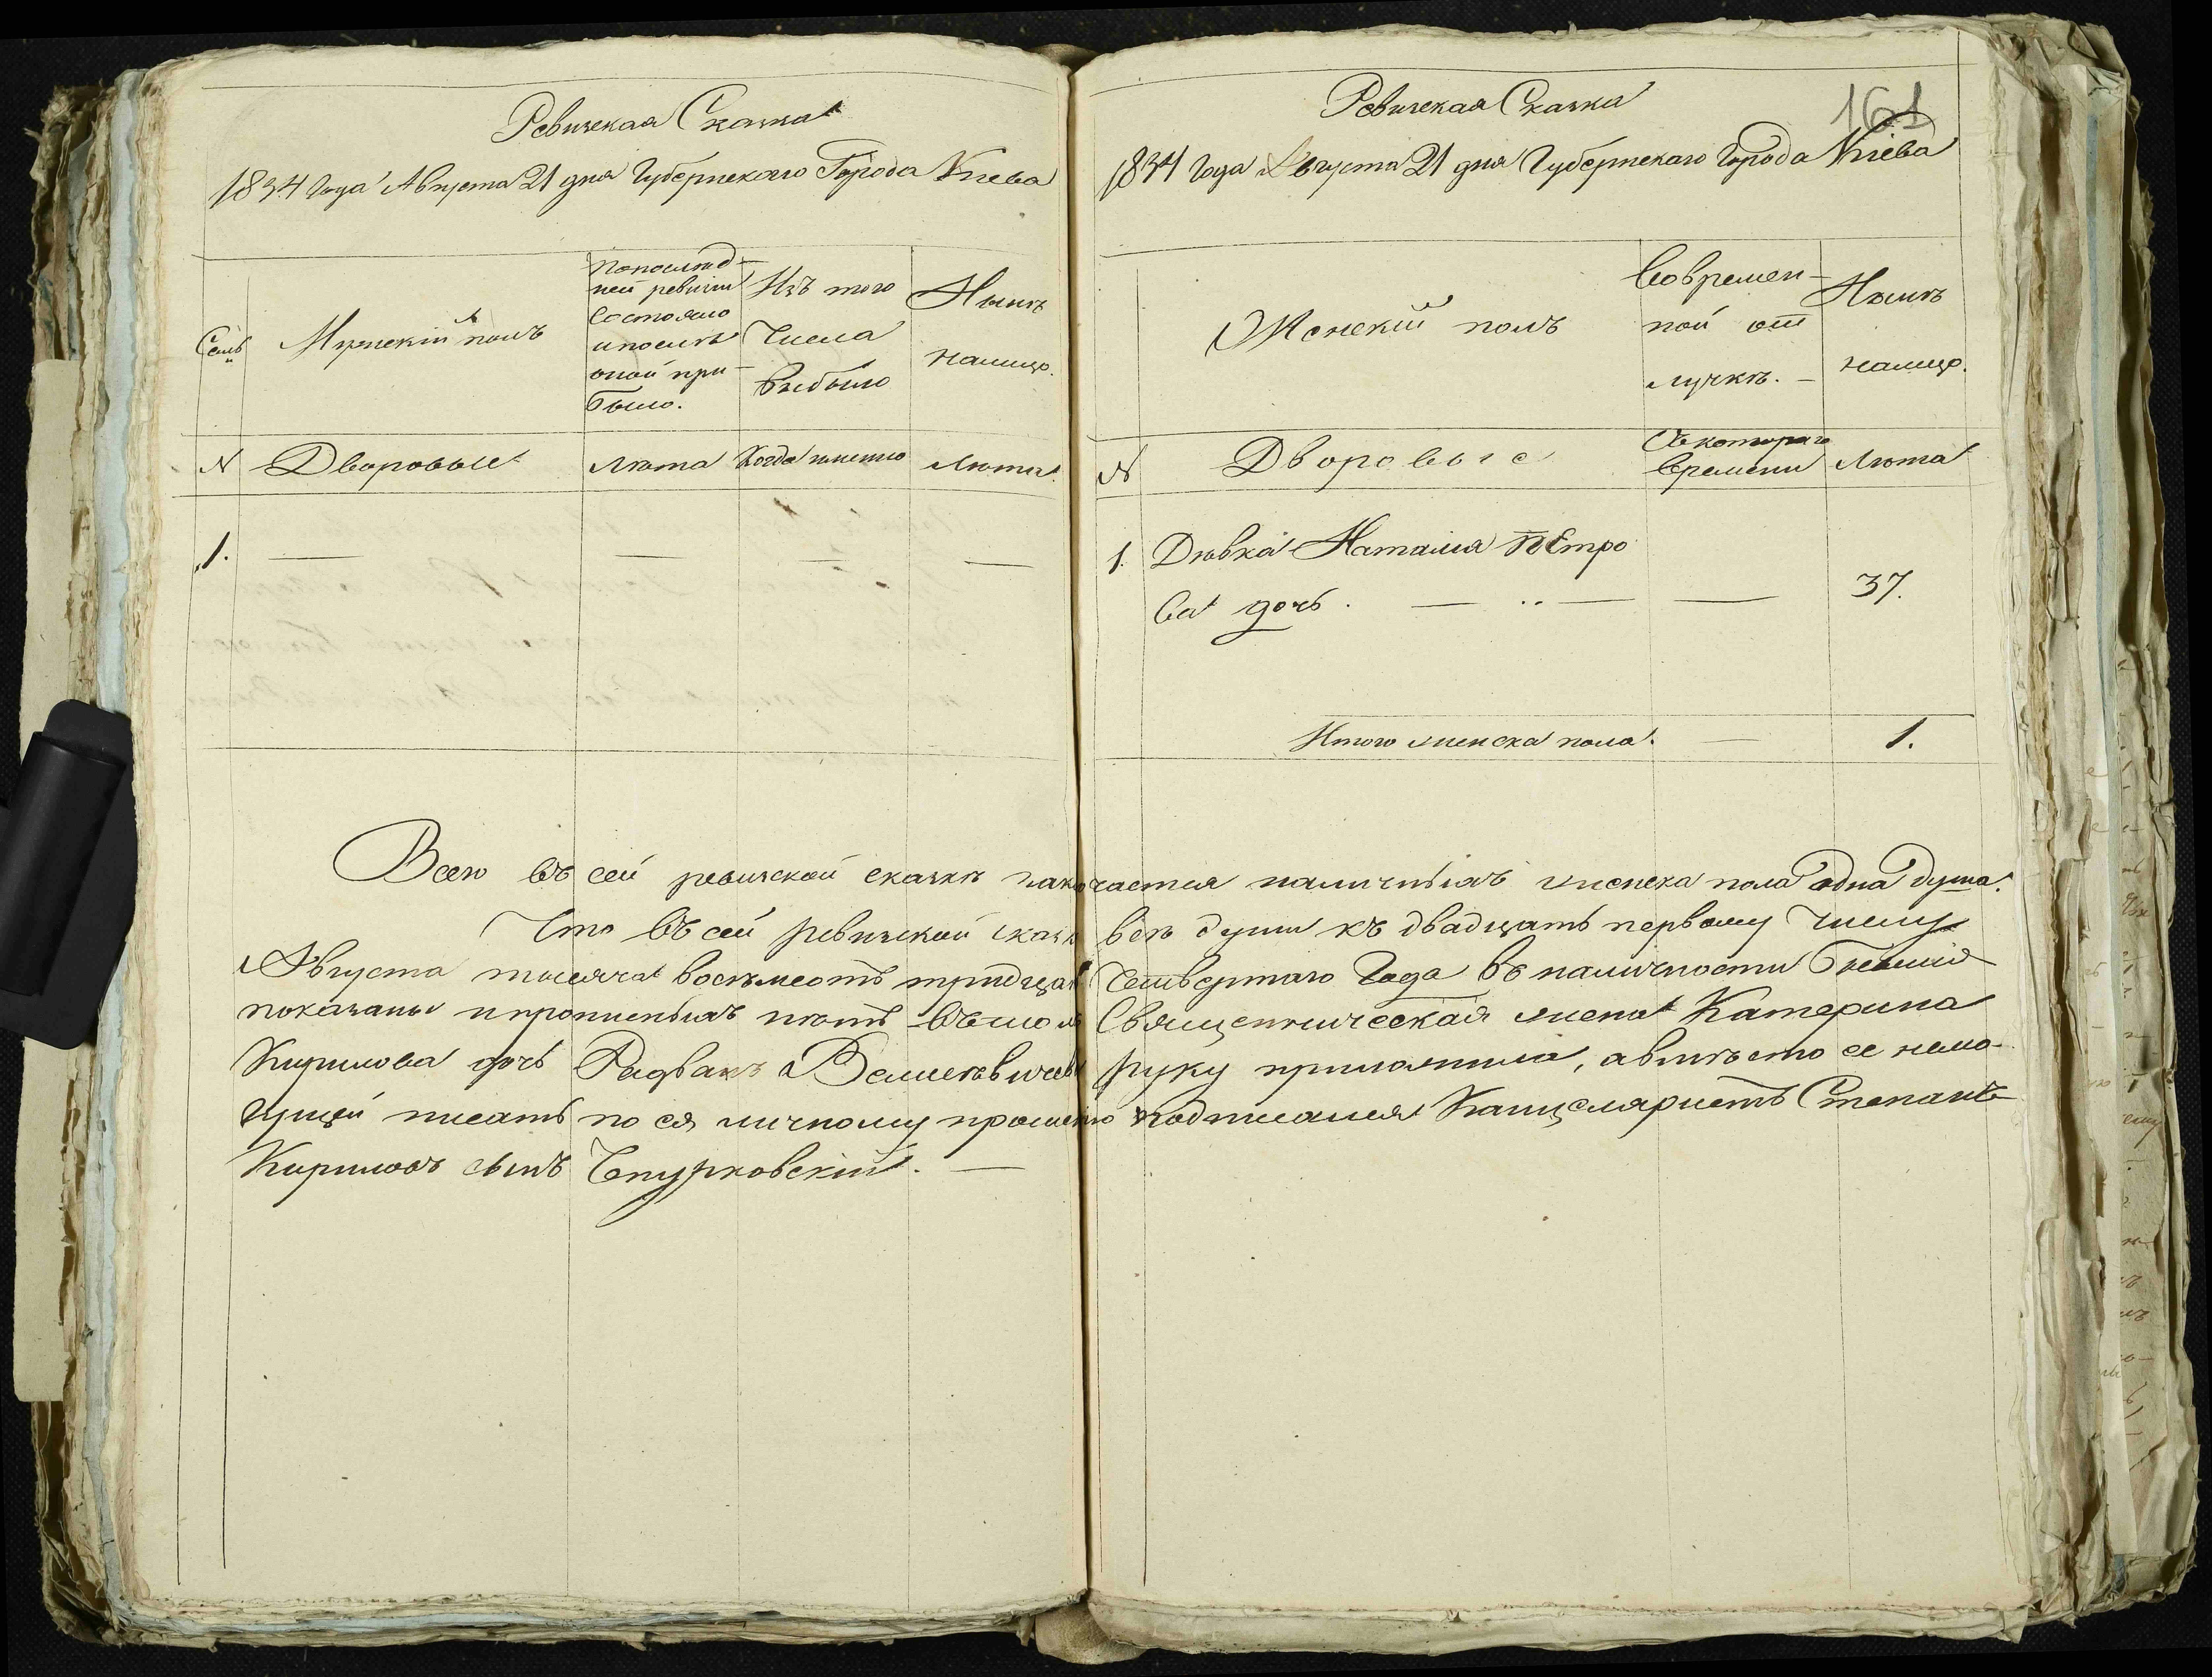 Ревизская Сказка
1834 Года Августа 21 дня Губернскаго Города Киева
Семь
Мужескій полъ
По послѣд-
ней ревизіи
состояло
и послѣ
оной при-
было.
Изъ того
Числа
Выбыло
Нынѣ
налицо.
N Дворовые Лѣта Когда именно Лѣта
1. — — — —
161
Ревизская Сказка
1834 Года Августа 21 дня Губернскаго Города Кіева
Женскій полъ
Во времен-
ной от
лучкѣ. —
Нынѣ
налицо.
N Дворовые Съ котораго Времени Лѣта
1. Дѣвка Наталия Петро
ва дочь. — — — 37.
Итого женска пола. — 1.
Всего въ сей ревизской сказкѣ заключается наличныхъ женска пола одна душа.
Что въ сей ревизской сказкѣ всѣ души къ двадцать первому Числу
Августа тысяча восемьсотъ тридцать Четвертаго Года въ наличности бывшія
показаны и прописныхъ нѣтъ въ томъ Священническая жена Катерина
Кирилова дочь руку приложила, а вмѣсто ее немо-
гущей писать по ея личному прошенію подписался Канцеляристъ Степанъ
Кириловъ сынъ —